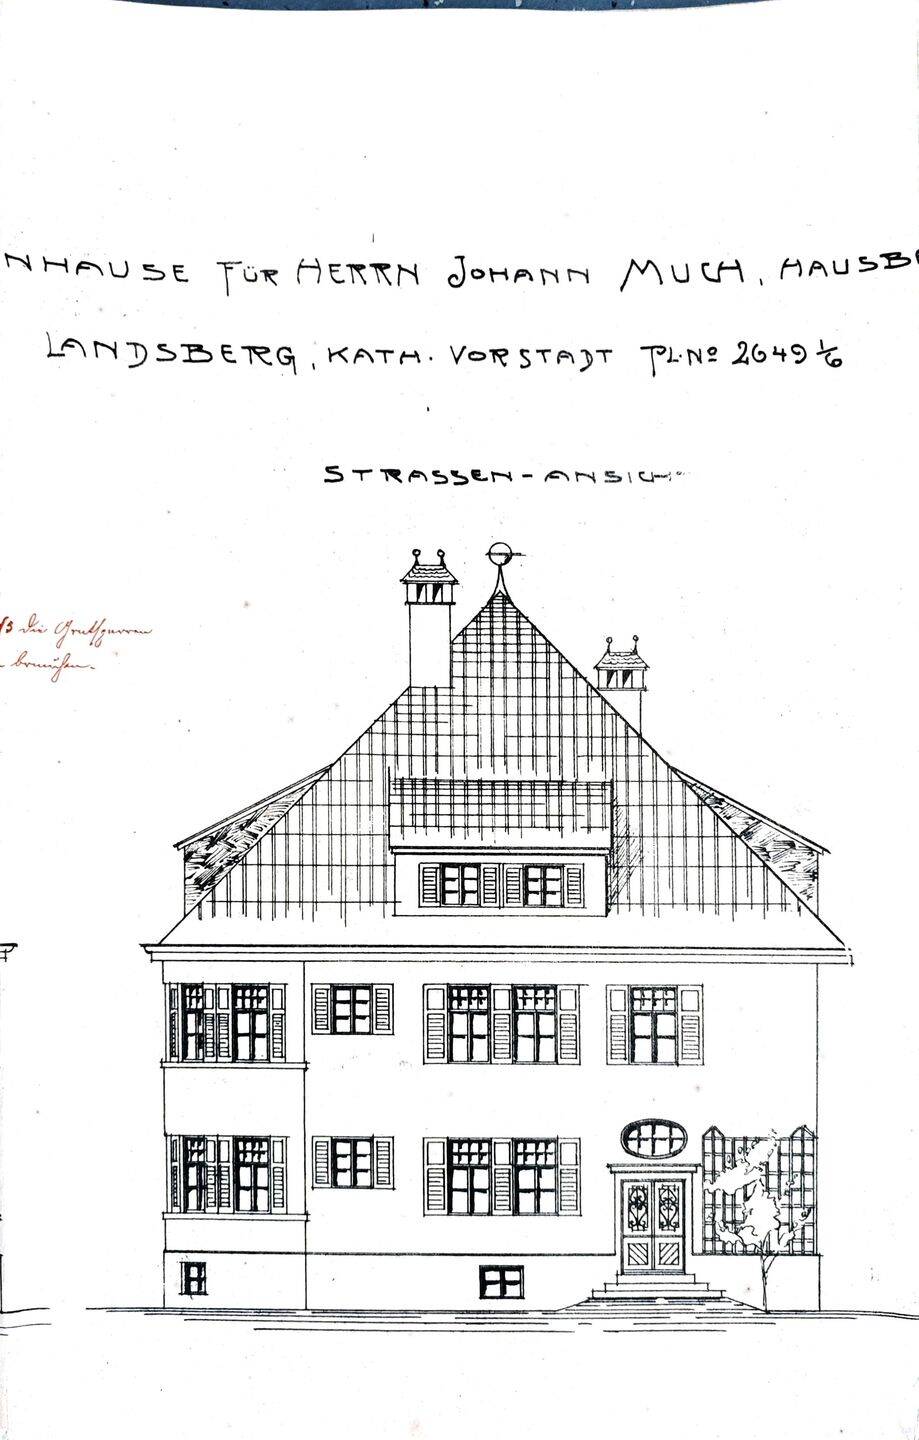 NHAUSE FÜR HERRN JOHANN MUCH, HAUSB
LANDSBERG, KATH. VORSTADT PL.No 2649 1/6
STRASSEN-ANSICH
die Gratsparren